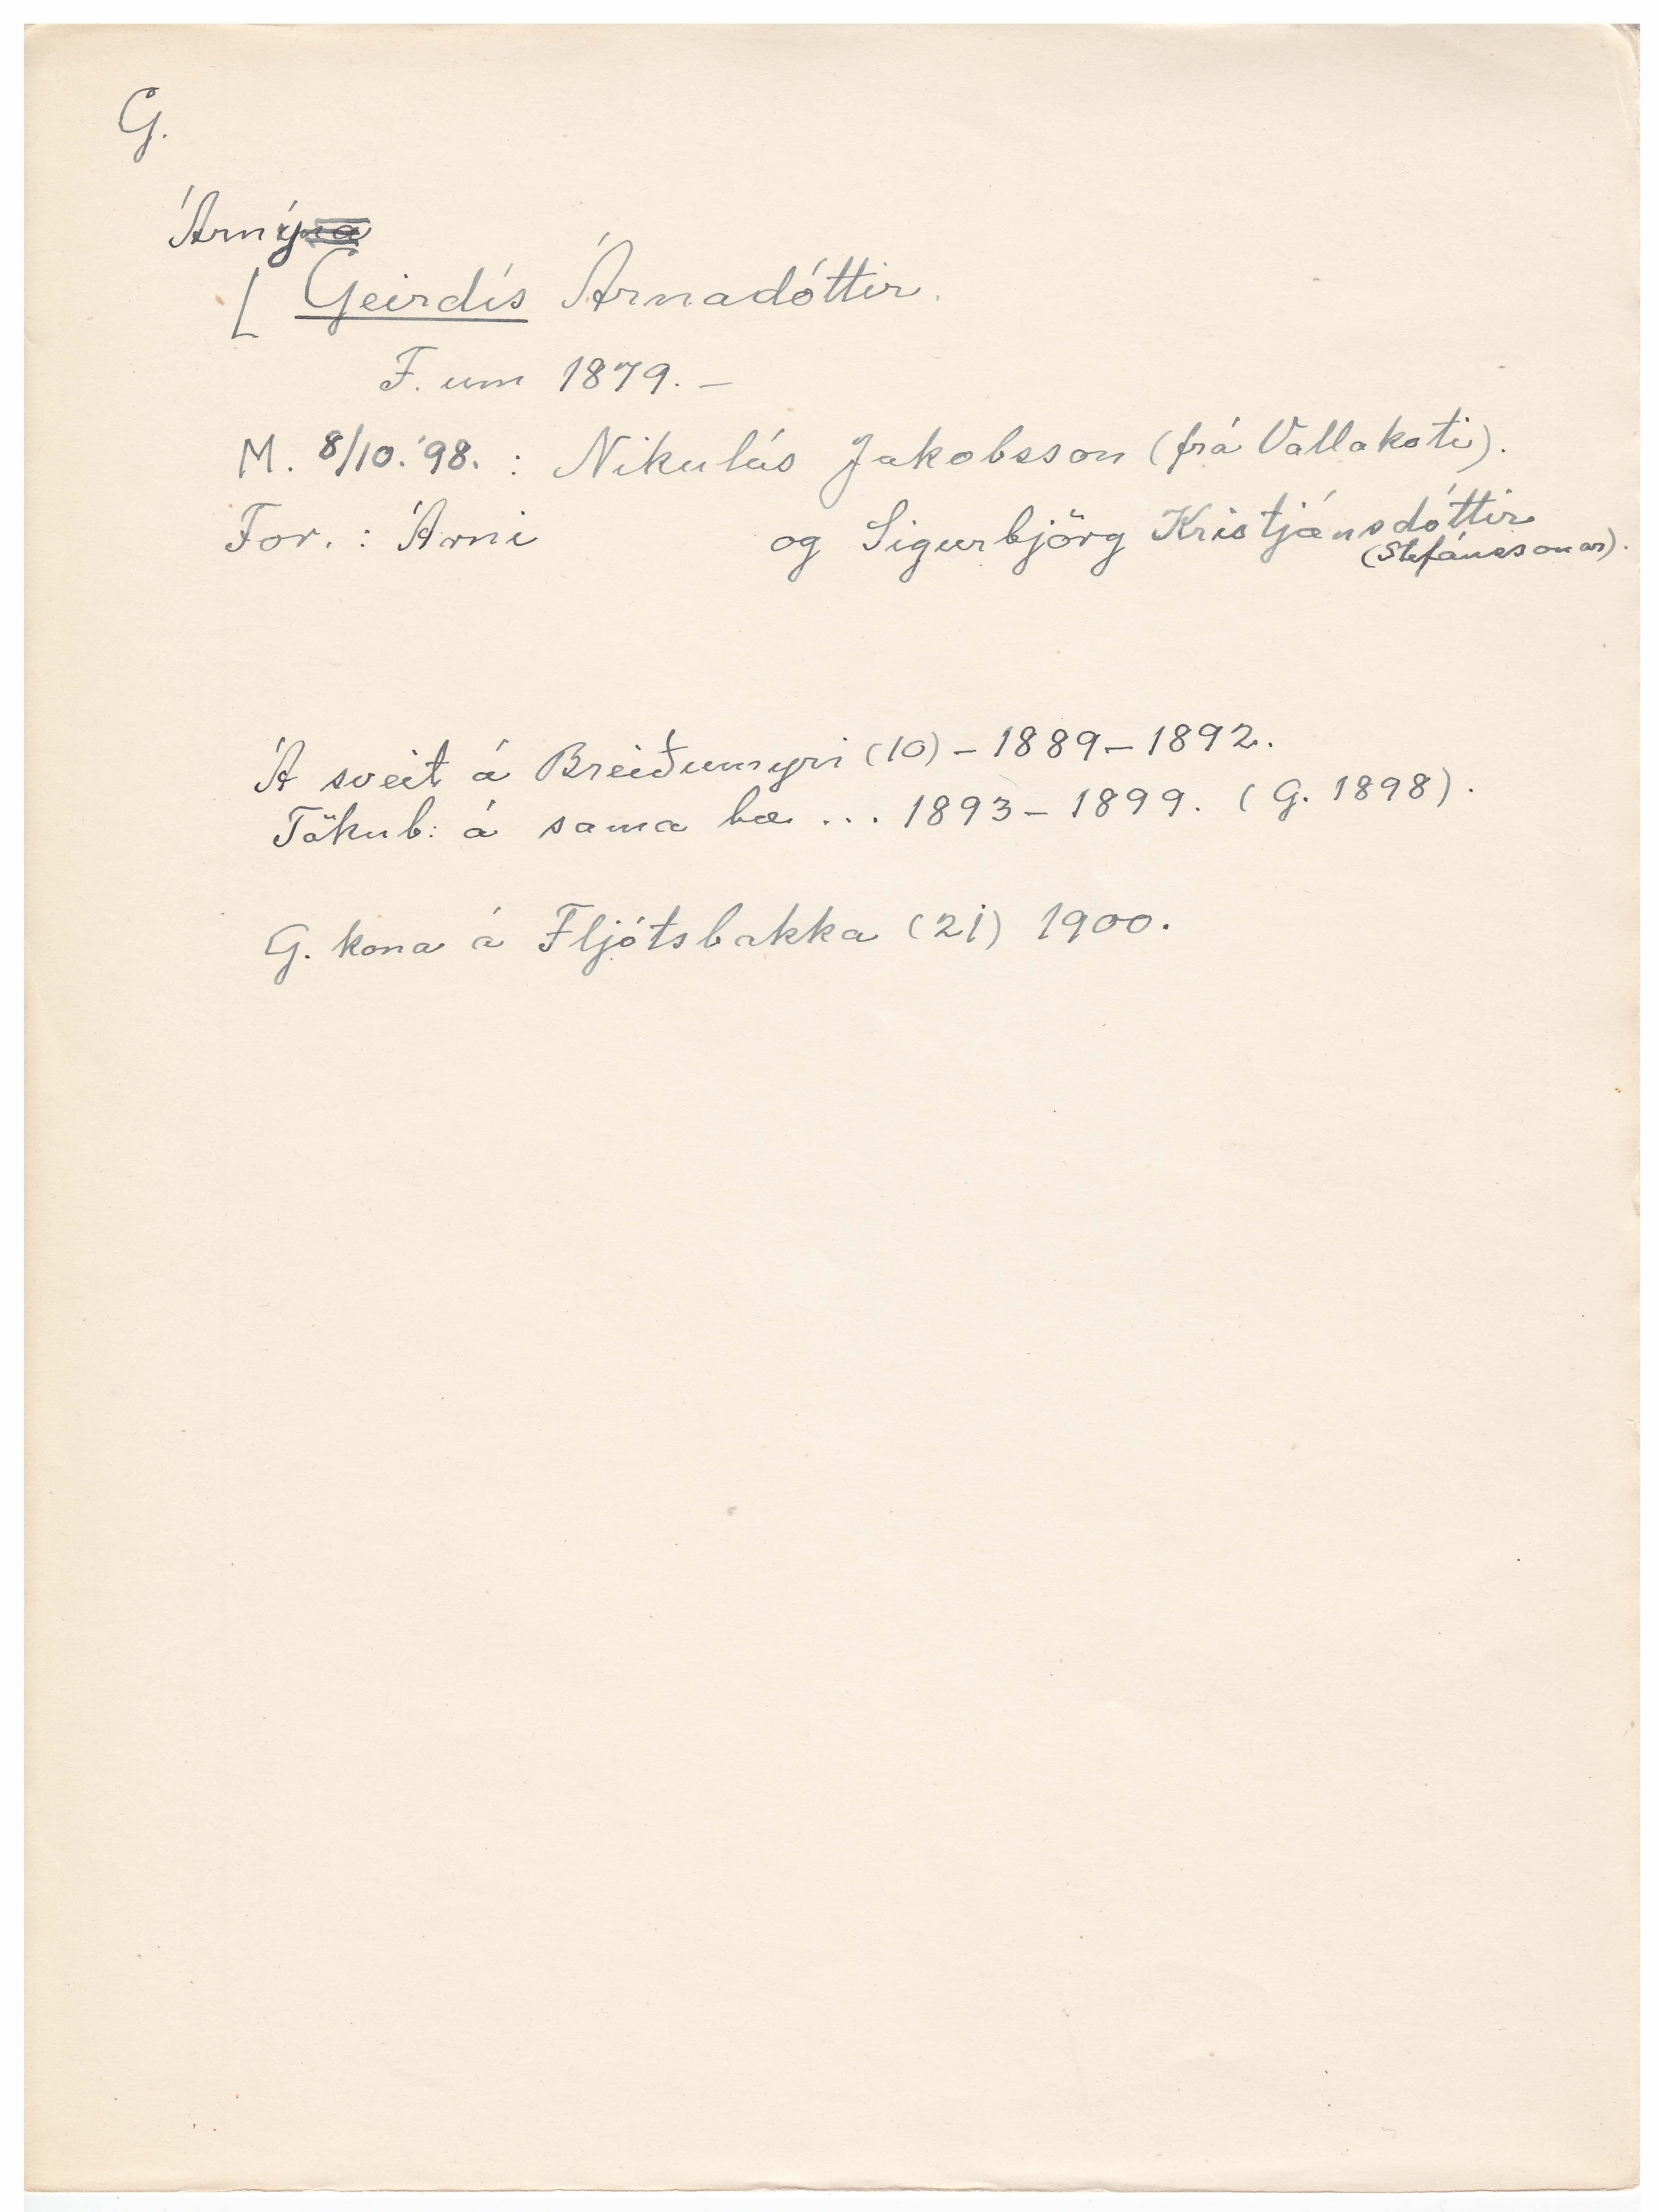 G.
Árný
[ Geirdís Árnadóttir.
F. um 1879. –
M. 8/10. '98. : Nikulás Jakobsson (frá Vallakoti).
For. : Árni og Sigurbjörg Kristjánsdóttir
(Stefánssonar).
Á sveit á Breiðumýri (10) – 1889 – 1892.
Tökub: á sama bæ ... 1893 – 1899. (G. 1898).
G. kona á Fljótsbakka (21) 1900.